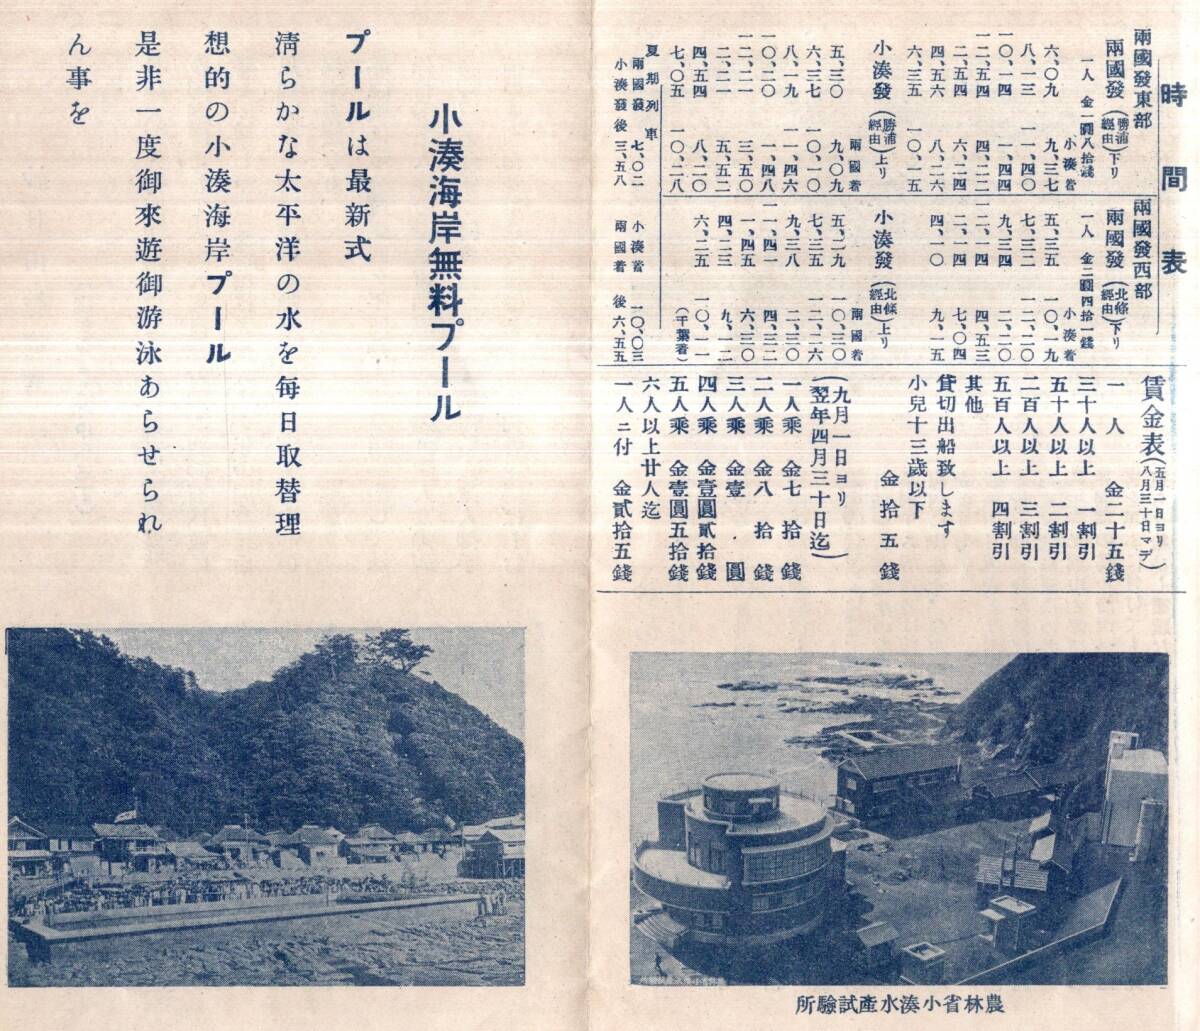 時間表
兩國發東部
兩國發(勝浦經由)下リ
一人 金一圓八拾錢
小湊着
六、〇九 九、三七
八、一三 一一、四〇
一〇、一四 一、四四
一二、五四 四、二二
二、五四 六、二四
四、五六 八、二六
六、三五 一〇、一五
小湊發(勝浦經由)上リ
兩國着
五、三〇 九、〇九
六、三七 一〇、一〇
八、一九 一一、四六
一〇、二〇 一、四八
一二、二一 三、五〇
二、二一 五、五二
四、五四 八、二〇
七、〇五 一〇、二八
兩國發西部
兩國發(北條經由)下リ
一人 金二圓四拾一錢
小湊着
五、三五 一〇、一九
七、三二 一二、二〇
九、三四 二、二〇
一二、一四 四、五三
二、一四 七、〇四
四、一〇 九、一五
小湊發(北條經由)上リ
兩國着
五、二九 一〇、三〇
七、三五 一二、二六
九、三八 二、三〇
一一、四一 四、三二
一、四五 六、三〇
四、二三 九、一二
六、二五 一〇、一一
(千葉着)
夏期列車
兩國發 七、〇二 小湊着 一〇、〇三
小湊發 後三、五八 兩國着 後六、五五
賃金表(五月一日ヨリ八月三十日マデ)
一人 金二十五錢
三十人以上 一割引
五十人以上 二割引
二百人以上 三割引
五百人以上 四割引
其他
貸切出船致します
小兒十三歲以下
金拾五錢
(九月一日ヨリ
翌年四月三十日迄)
一人乘 金七拾錢
二人乘 金八拾錢
三人乘 金壹圓
四人乘 金壹圓貳拾錢
五人乘 金壹圓五拾錢
六人以上廿人迄
一人ニ付 金貳拾五錢
農林省小湊水産試驗所
小湊海岸無料プール
プールは最新式
淸らかな太平洋の水を每日取替理
想的の小湊海岸プール
是非一度御來遊御游泳あらせられ
ん事を